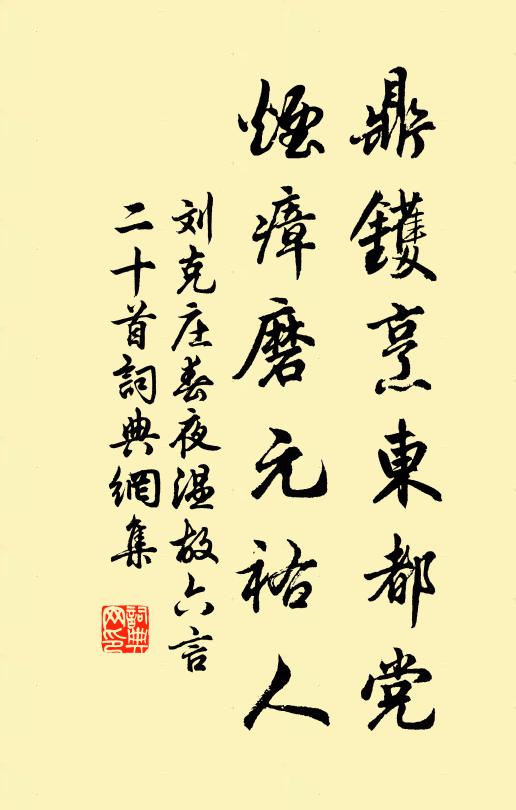 鼎鑊烹東都党
烟瘴磨元祐人
刘克庄春夜温故六言
二十首詞典網集
詞典网印